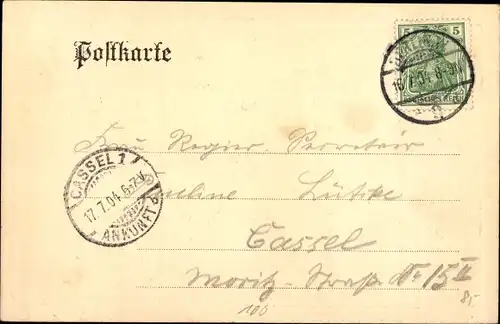 Postkarte
5 5
16.7.04
Frau Regier. Secretair
CASSEL 1
17.7.04 6-7V.
ANKUNFT
Lütke
Cassel
Moritz-Straße No 15 II
100
85